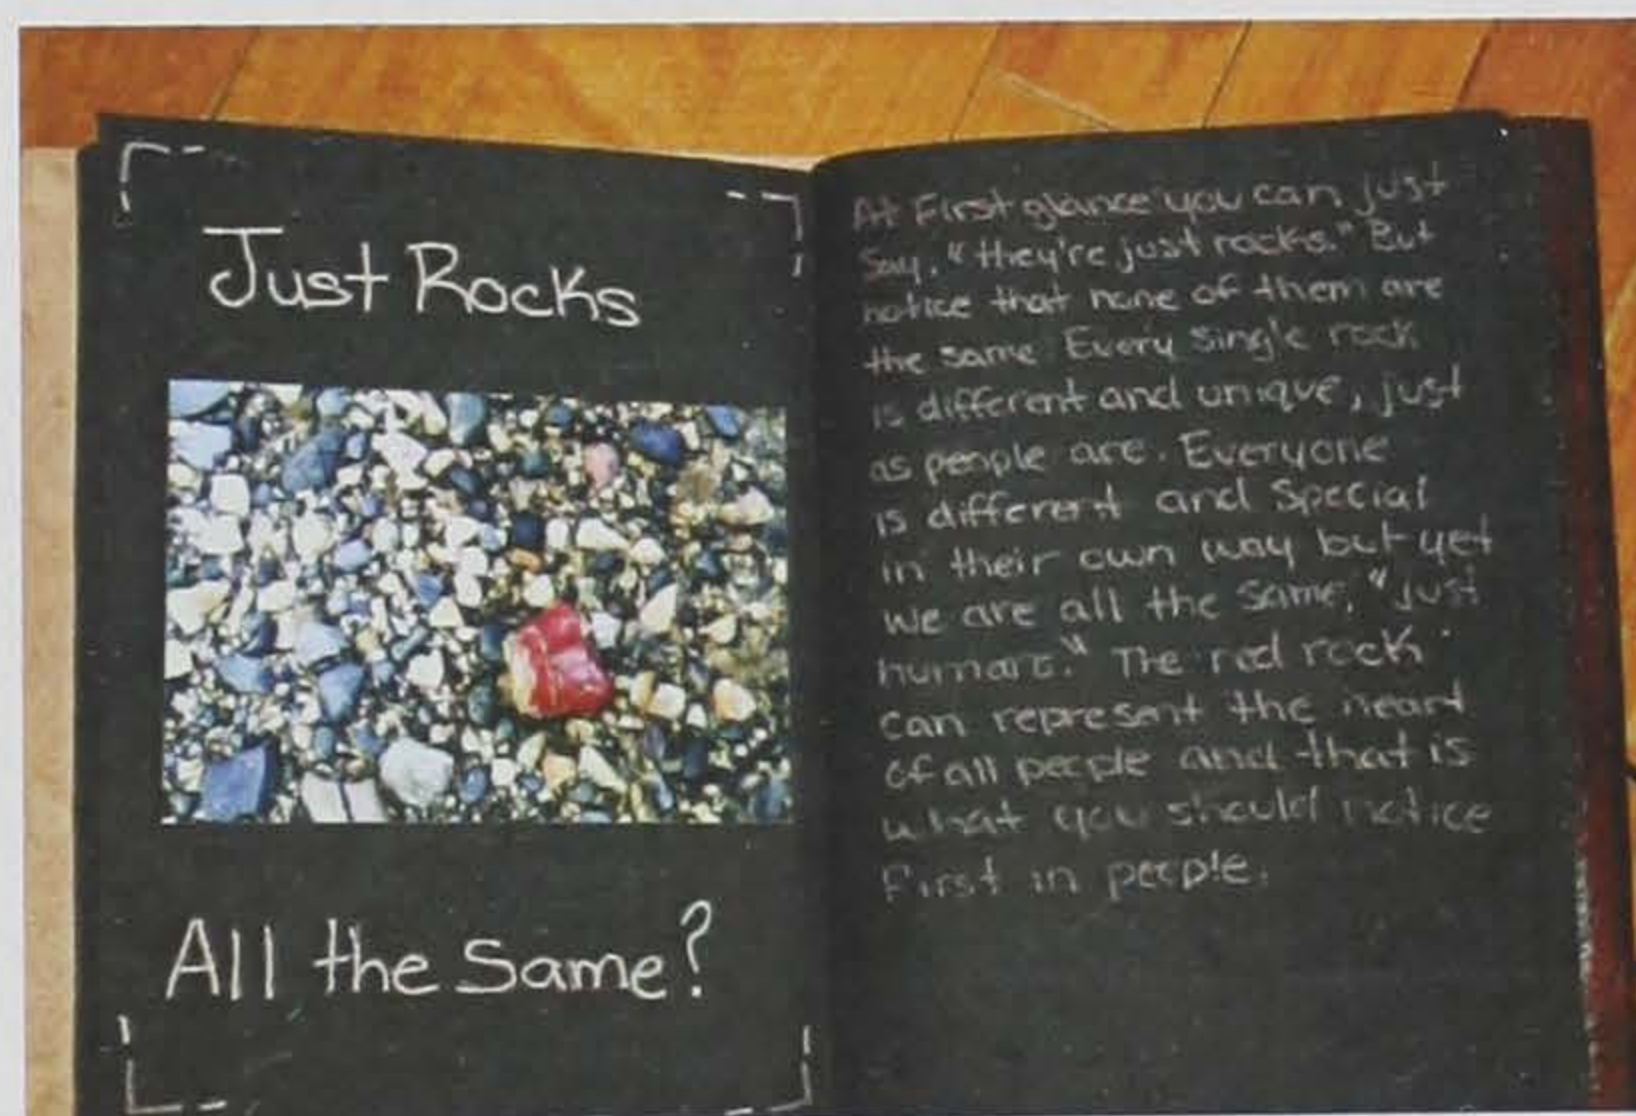 Just Rocks
All the Same?
At First glance you can just
Say, "they're just rocks." But
notice that none of them are
the same Every single rock
is different and unique, just
as people are. Everyone
is different and Special
in their own way but yet
we are all the same, "just
humans." The red rock
can represent the heart
of all people and that is
what you should notice
First in people.